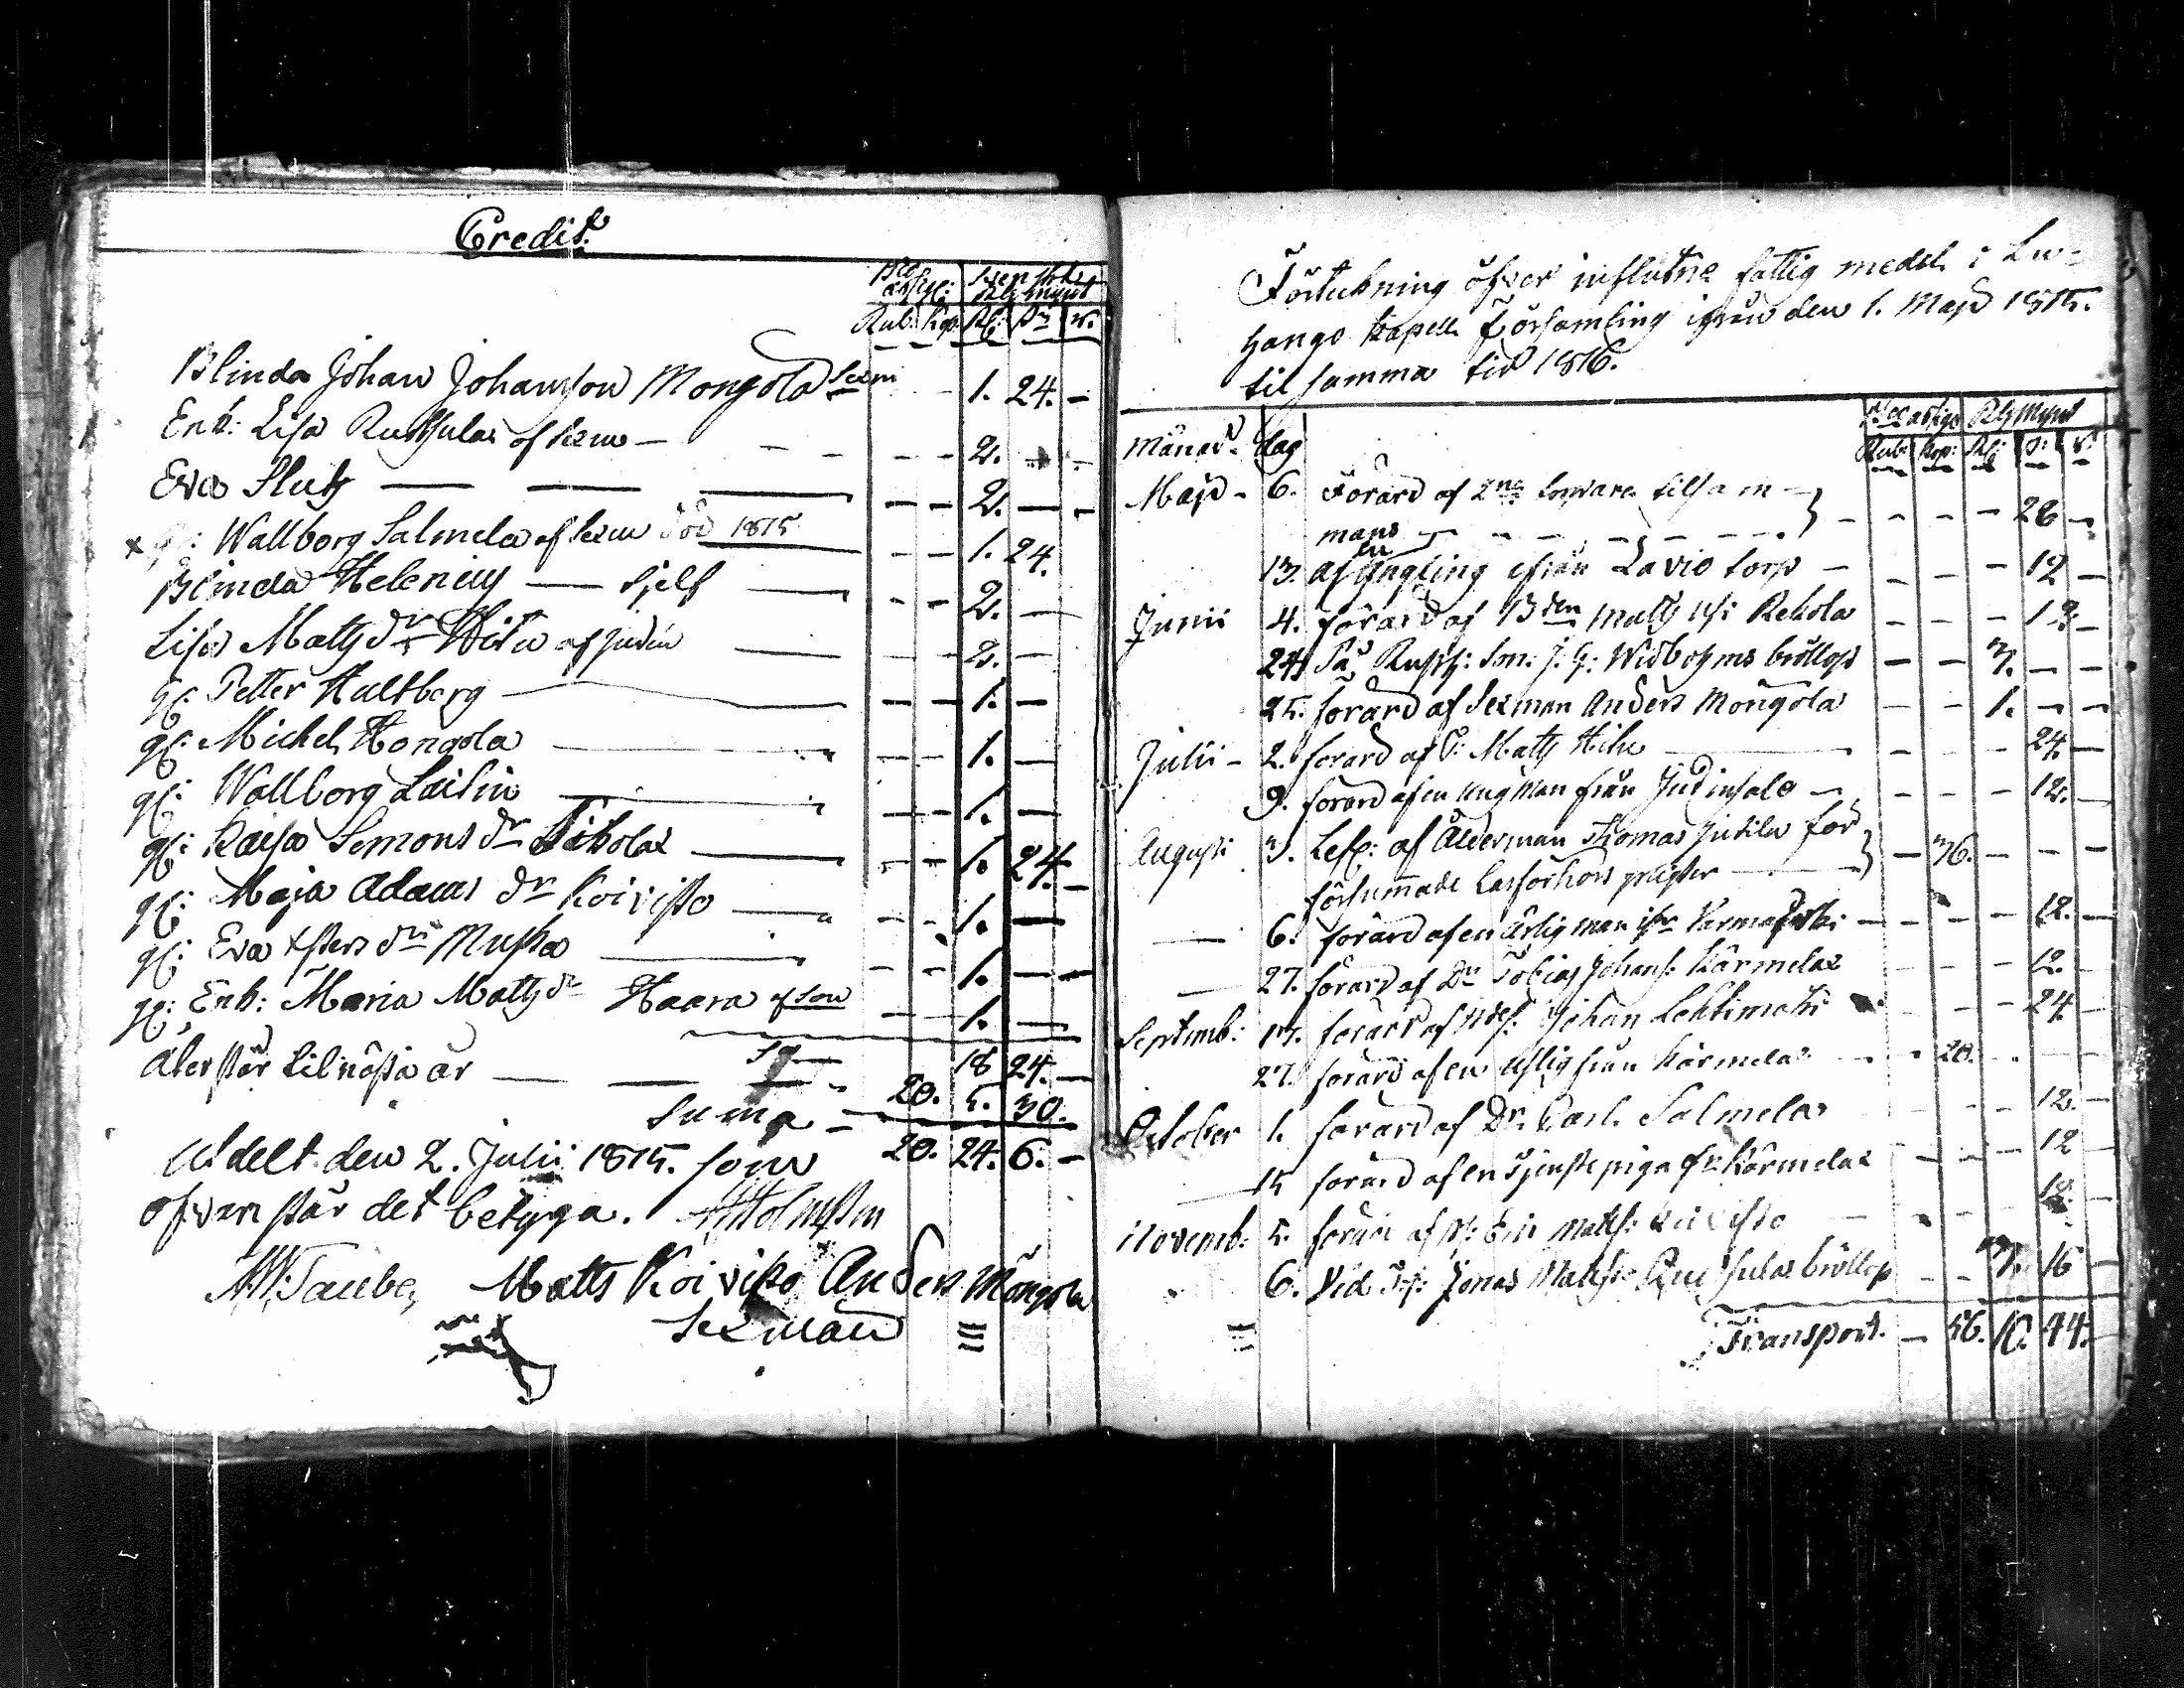 Credit.
Svenske
Rd mynt
Rub: Kop: Rd: s: r:
Blinda Johan Johansson Mongola Sexm - 1. 24. -
Enk: Lisa Ruthsulas of Sexm - - - - 2. - -
Eva Slutz - - - - - 2. - -
x Wallborg Salmela af Sexm död 1815 - - 1. 24.
Blinda Helenius - sjelf - - - 2. -
Lisa Matts dr Hitu af Judin - 2. -
gl: Petter Hultberg - 1. -
gl: Michel Hongola - - - 1. -
gl: Wallborg Lailin - - - 1. -
gl: Kaisa Semons dr Sikolax - - - 1. 24. -
gl: Maja Adams dr Koivisto - - - 1. -
gl: Eva dr Muska - - - 1. - -
gl: Enk: Maria Matts dr Haara af Son - - 1. -
18 24. -
Återstår til nästa år - - - 20. 5. 30.
Suma - 20. 24. 6. -
Utdelt den 2. Julii 1815. som
ofvanstår det betyga. Holmsten
Taube, Matts Koivisto Anders Mångola
Sexman
Förteckning öfver influtne fattig medel i Lu-
hango Kapell Församling ifrån den 1. Maji 1815.
til samma tid 1816.
Månad. dag Rd Mynt
Rub: Kop: Rd: s: r:
Maji - 6. Förärd af 2ne torpare tilsam-
mans - - - - 28 -
13. af en Yngling ifrån Lavio torp - - - - 12 -
Junii 4. förärd af Bden Matts Rekola - - - 12. -
24. På Rusth: Son: J: G: Widbohms bröllop - - 3. - -
25. förärd af Sexman Anders Mongola - - 1. - -
Julii - 2. förärd af Matts Hihu - - - - 24. -
9. förärd af en ung Man från Judinsalo - - - - 12. -
Augusti 3. af Ålderman Thomas Jutila för
försummade - 36. - - -
- 6. förärd af en ärlig man - - - - 12. -
- 27. förärd af Dr Tobias Johans: Kärmelax - - 12. -
Septemb: 13. förärd af Johan Lehtimäki - - 24. -
27. förärd af en från Kärmelax - - 20. - - -
October 1. förärd af Dr Carl Salmelas - - - 12. -
- 15 förärd af en tjenstepiga fr: Kärmelax - - - 12
Novemb: 5. förärd af Matts: Koivisto - - - 12. -
6. Vid Jonas Matts: Ruthsulas bröllop - - 3. 16 -
Transport. - 56. 10. 44. -